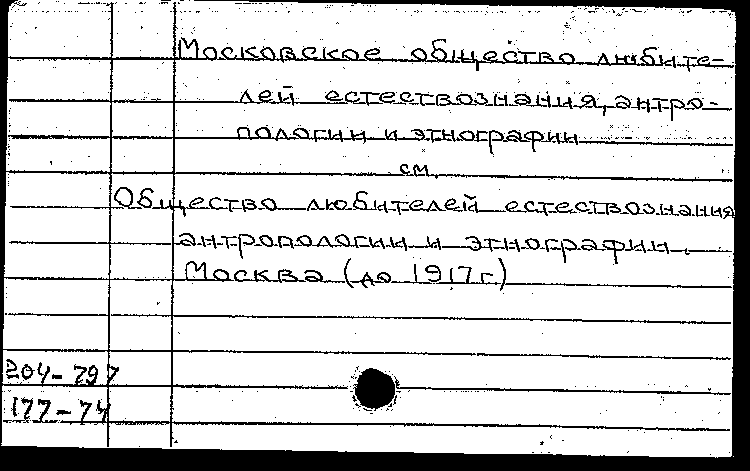 Московское общество любите-
лей естествознания, антро-
пологии и этнографии
см.
Общество любителей естествознания
антропологии и этнографии.
Москва (до 1917 г.)
204-797
177-74